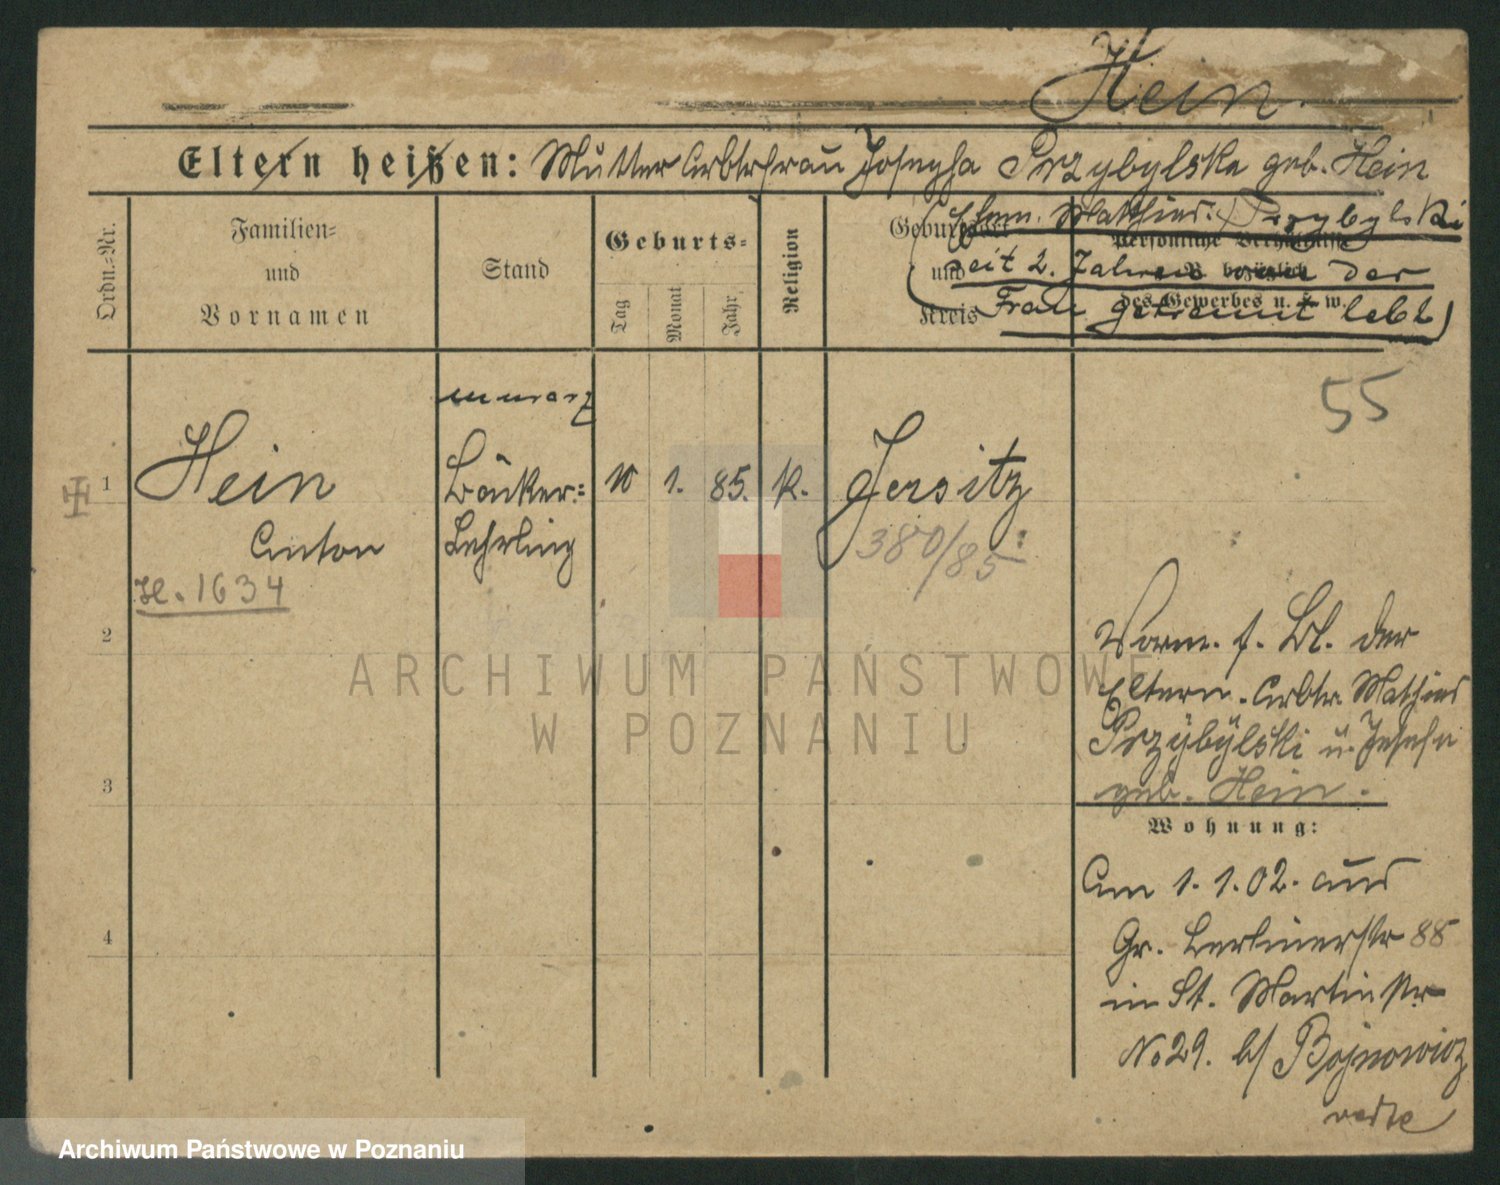 Hein.
Eltern heißen: Mutter Arbtrfrau Josepha Przybylska geb. Hein
(Ehem. Mathias Przybylski
seit 2 Jahren von der
Frau getrennt lebt)
Ordn.-Nr.
Familien-
und
Vornamen
Stand
Geburts-
Tag
Monat
Jahr
Religion
Geburtsort
und
Kreis
Persönliche Verhältnisse
bezüglich
des Gewerbes u. s. w.
55
umarz
1
Hein
Bäcker-
10 1. 85. k.
Jersitz
Anton
Lehrling
380/85
H. 1634
2
3
4
Vorm. f. Bl. der
Eltern Arbtr. Mathias
Przybylski u. Josefa
geb. Hein.
Wohnung:
Am 1.1.02. aus
Gr. Berlinerstr 88
in St. Martinstr
No 29. b/ Bojnowicz
ARCHIWUM PAŃSTWOWE
W POZNANIU
Archiwum Państwowe w Poznaniu